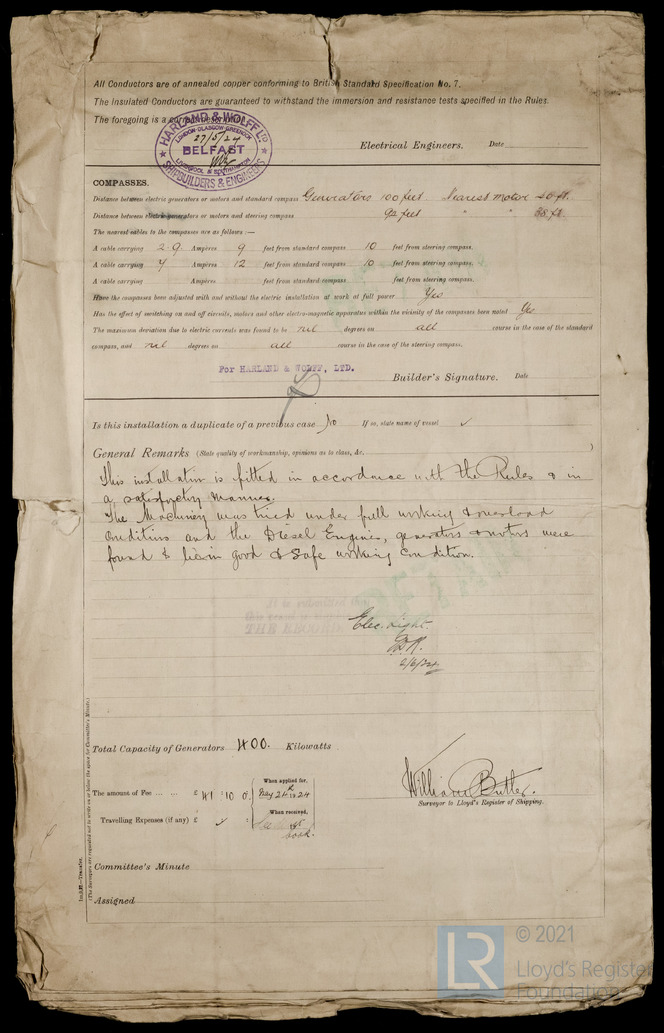 All Conductors are of annealed copper conforming to British Standard Specification No. 7.
The Insulated Conductors are guaranteed to withstand the immersion and resistance tests specified in the Rules.
The foregoing is a correct description
HARLAND & WOLFF LTD
LONDON GLASGOW GREENOCK
27/5/24
BELFAST
LIVERPOOL & SOUTHAMPTON
SHIPBUILDERS & ENGINEERS
Electrical Engineers. Date
COMPASSES.
Distance between electric generators or motors and standard compass Generators 100 feet. Nearest motor
Distance between electric generators or motors and steering compass 92 feet " "
The nearest cables to the compasses are as follows:—
A cable carrying 2.9. Ampères 9 feet from standard compass 10 feet from steering compass.
A cable carrying 4 Ampères 12 feet from standard compass 10 feet from steering compass.
A cable carrying Ampères feet from standard compass feet from steering compass.
Have the compasses been adjusted with and without the electric installation at work at full power Yes
Has the effect of switching on and off circuits, motors and other electro-magnetic apparatus within the vicinity of the compasses been noted Yes
The maximum deviation due to electric currents was found to be nil degrees on all course in the case of the standard
compass, and nil degrees on all course in the case of the steering compass.
For HARLAND & WOLFF, LTD.
Builder's Signature. Date
Is this installation a duplicate of a previous case No If so, state name of vessel ✓
General Remarks (State quality of workmanship, opinions as to class, &c.)
This installation is fitted in accordance with the Rules & in
a satisfactory manner.
The Machinery was tried under full working & overload
conditions and the Diesel Engines, generators & motors were
found to be in good & safe working condition.
It is submitted that
THE RECORD
Elec. Light.
2/6/24
Total Capacity of Generators 400. Kilowatts
The amount of Fee ... ... £ 41 : 10 0. When applied for, May 21st 1924
When received,
Travelling Expenses (if any) £ ✓ :
book.
William Butler.
Surveyor to Lloyd's Register of Shipping.
Committee's Minute
Assigned
(The Surveyors are requested not to write on or below the space for Committee's Minute.)
LR
© 2021
Lloyd's Register
Foundation